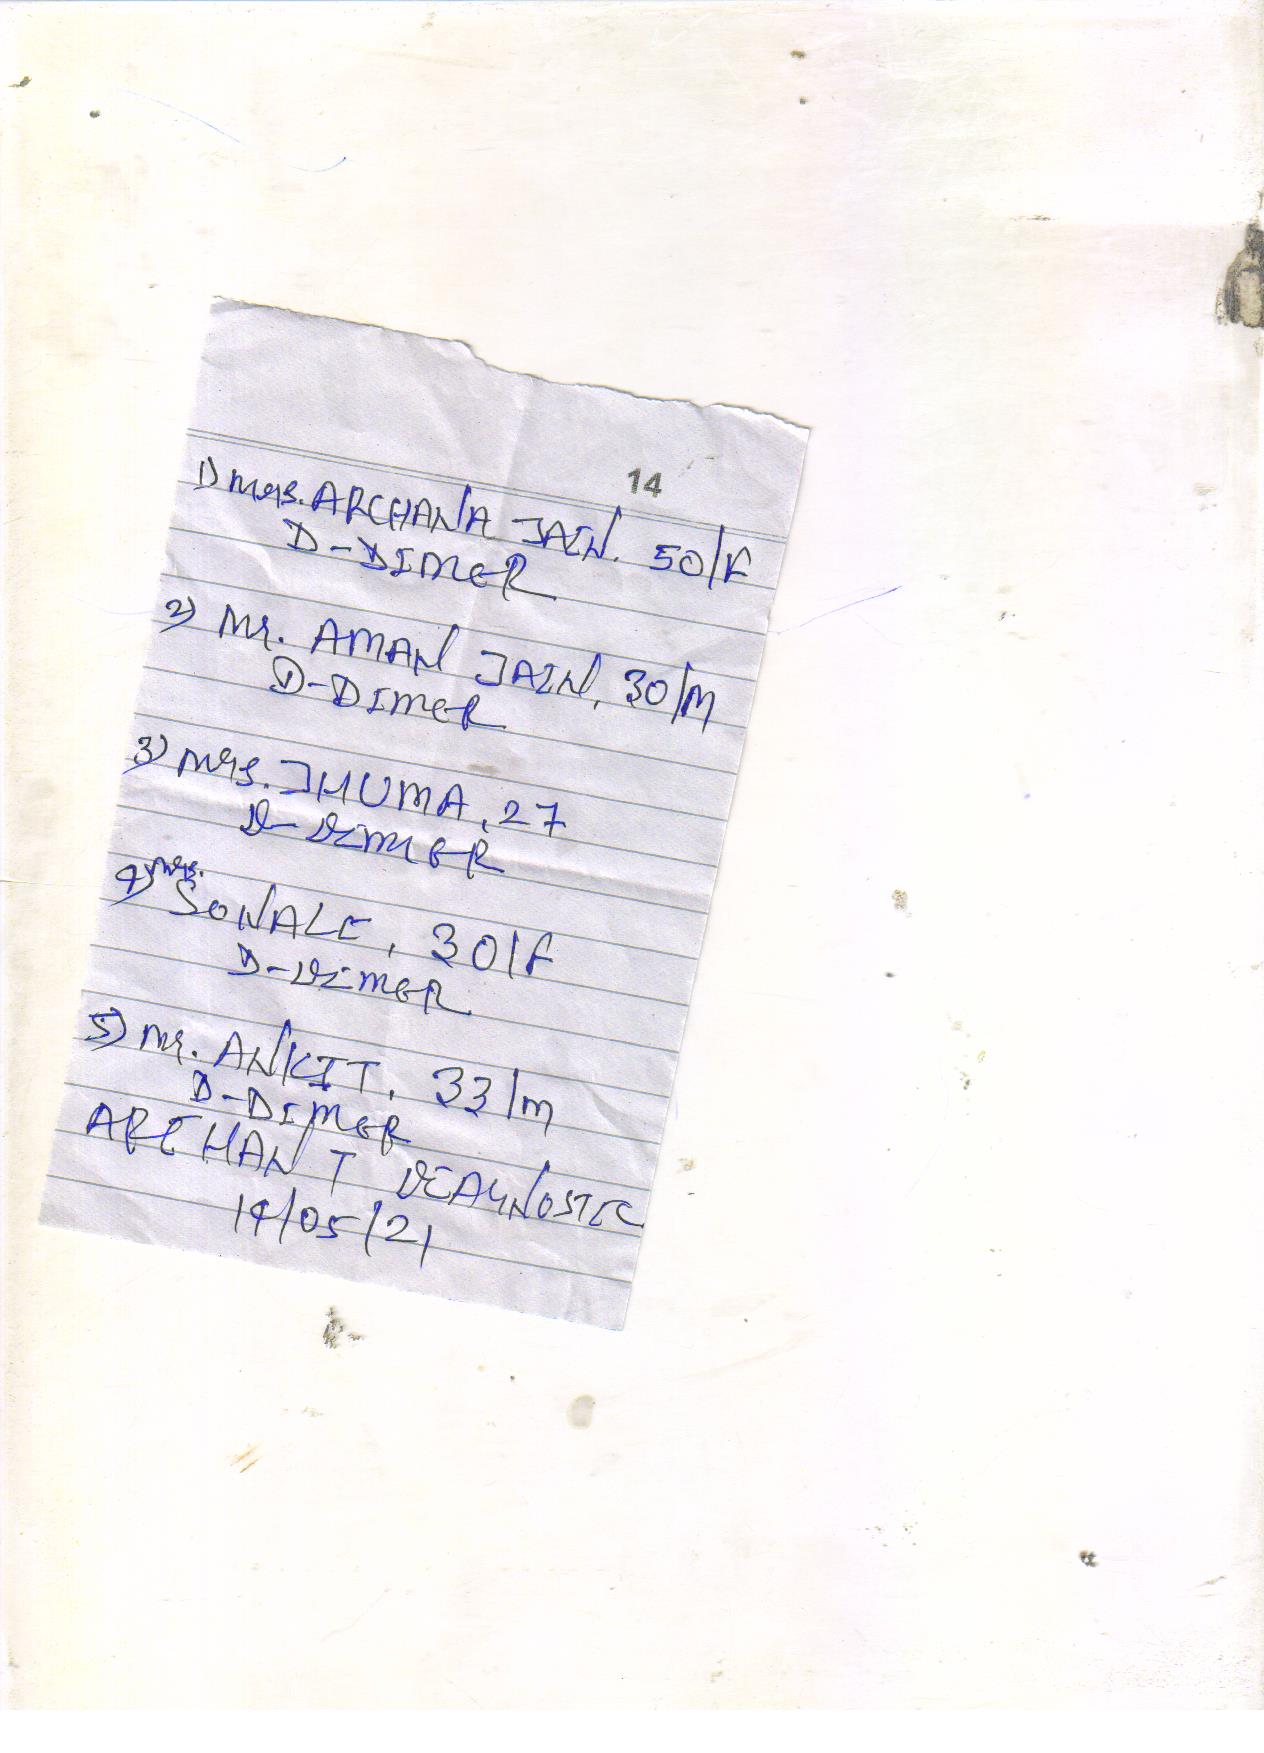 14
1) Mrs. ARCHANA JAIN. 50/F
D-DIMER
2) Mr. AMAN JAIN, 30/M
D-DIMER
3) Mrs. JHUMA, 27
D-DIMER
4) Mrs.
SONALI, 30/F
D-DIMER
5) Mr. ANKIT, 33/M
D-DIMER
ARIHANT DIAGNOSTIC
14/05/21